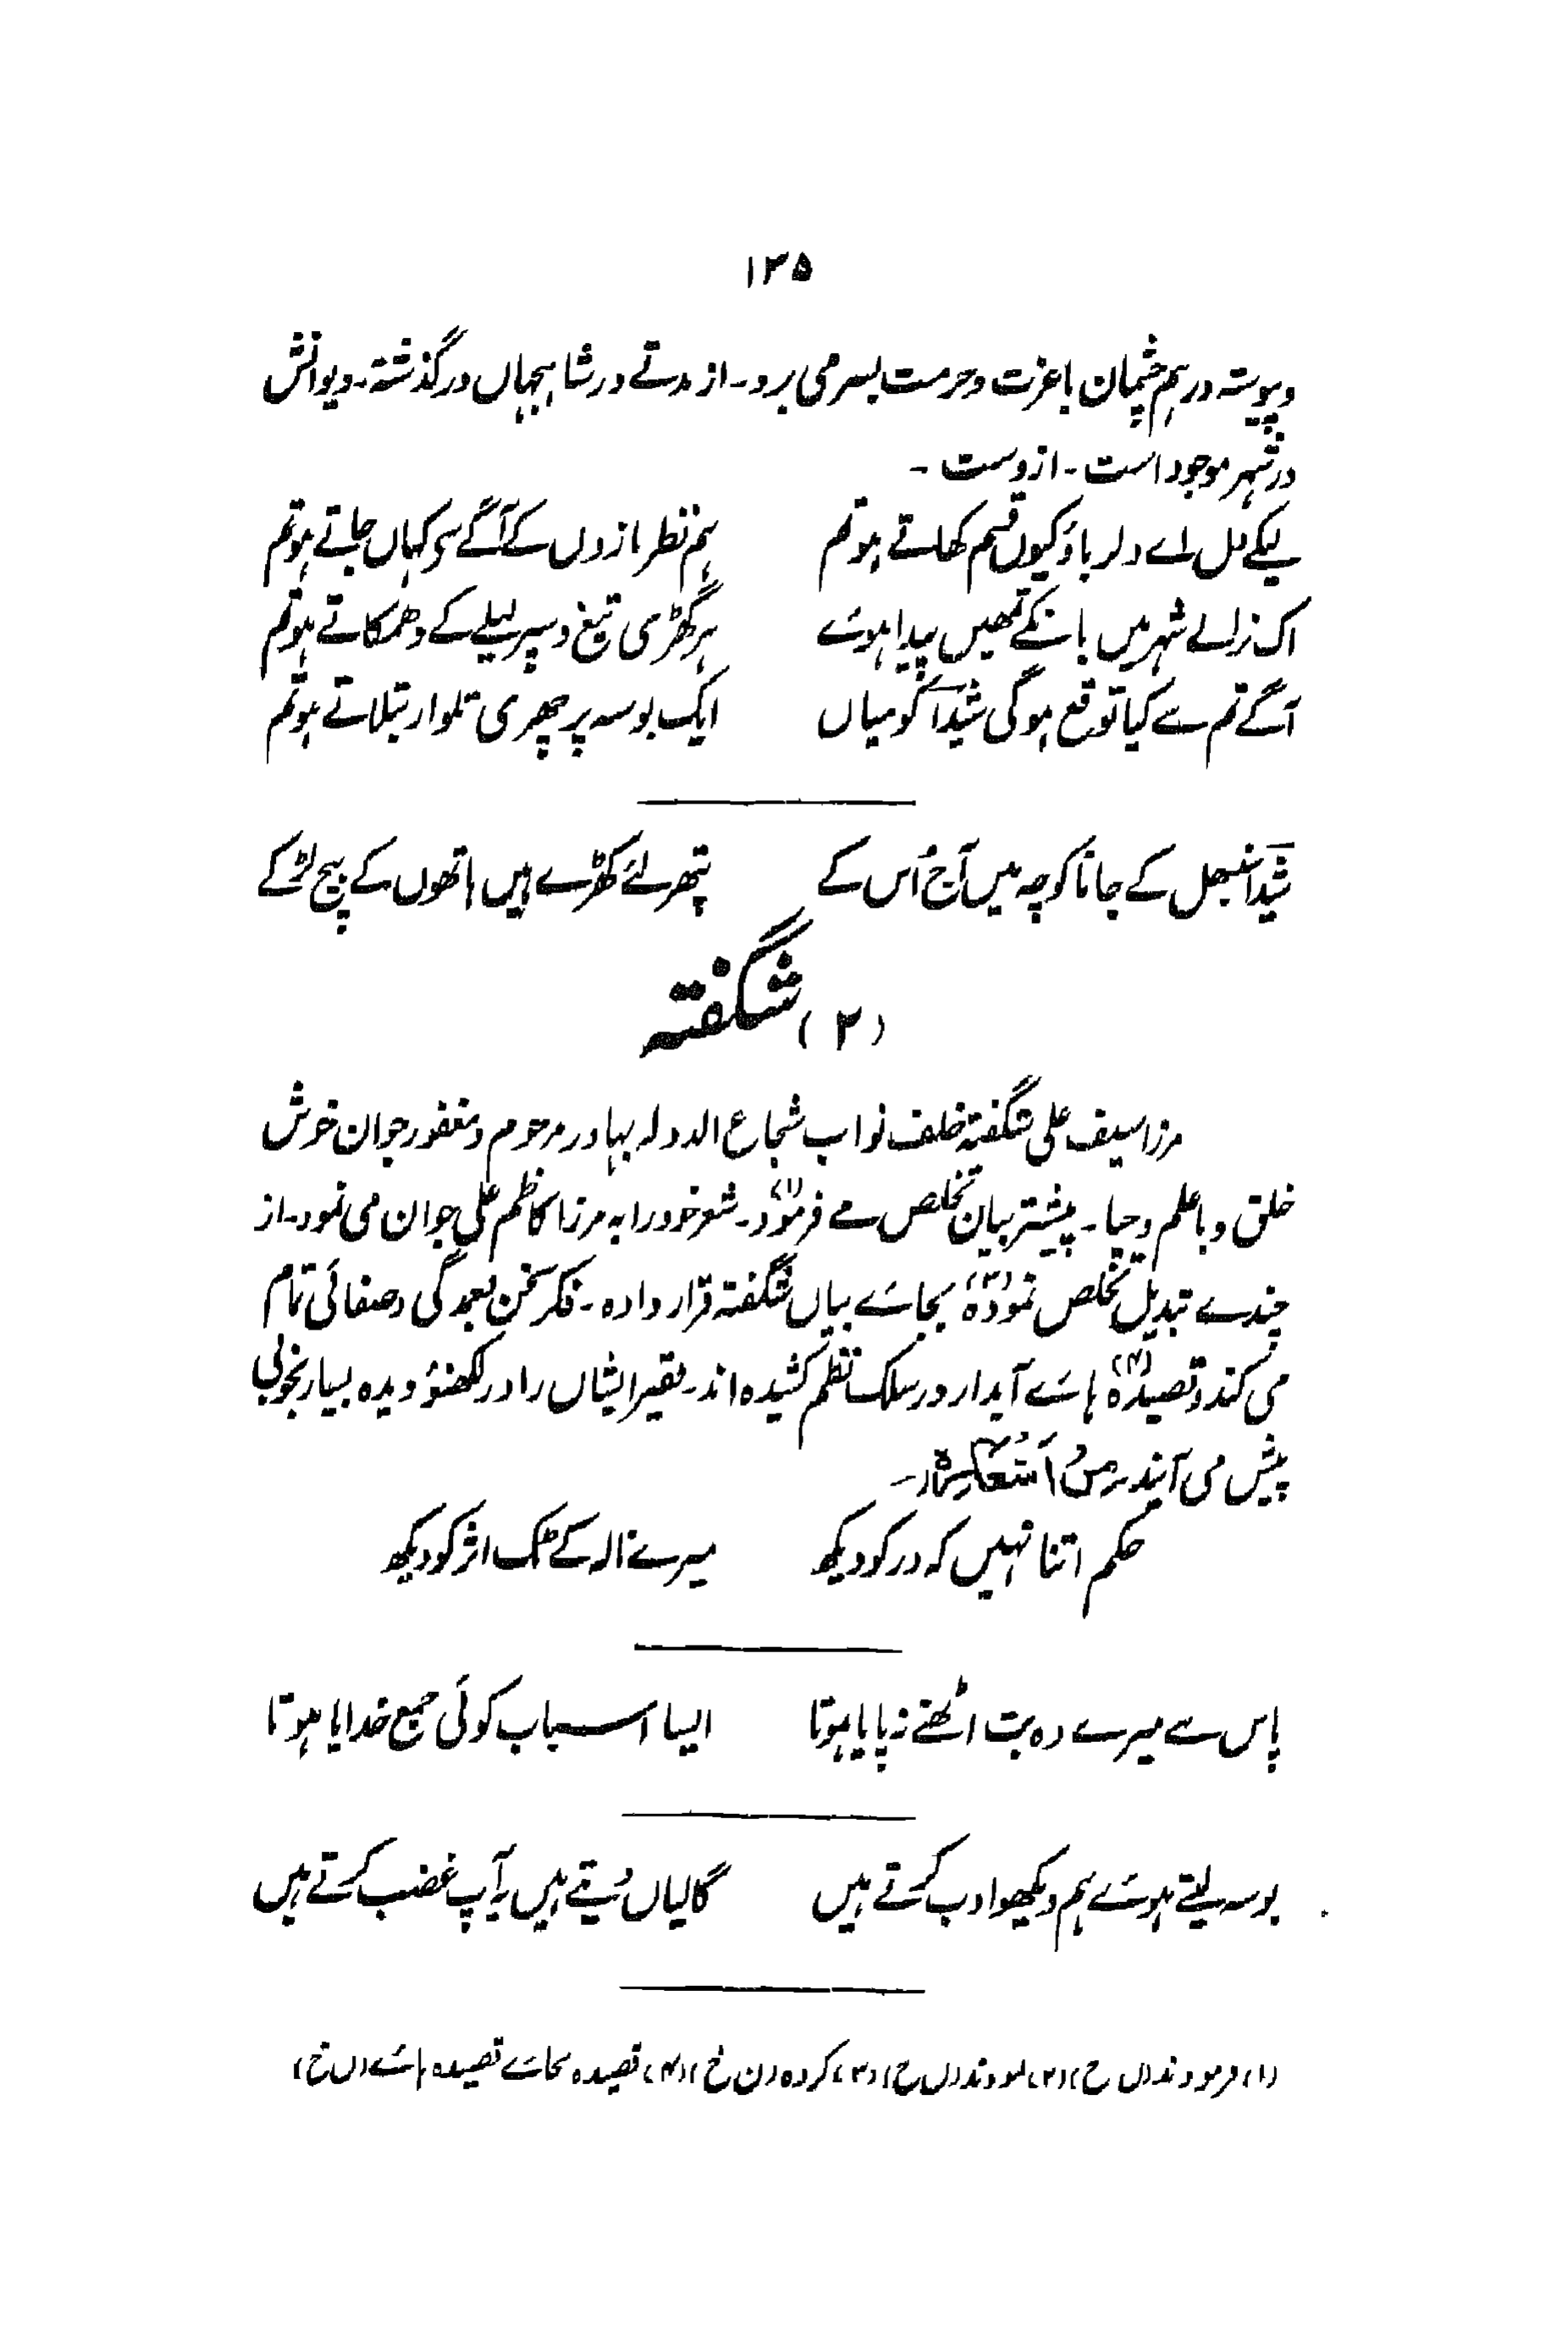 ۱۲۵
و پیوسته در ہم چشمان باعزت و حرمت بسر می برد۔ از مدتے در شاہجہاں درگذشتہ۔ دیوانش
در شہر موجود است۔ ازوست ۔
لیکے دل اے دلرباؤ کیوں قسم کھاتے ہو تم ہم نظر بازوں کے آگے سے کہاں جاتے ہو تم
اک نرالے شہر میں بانکے تمھیں پیدا ہوئے ہر گھڑی تیغ و سپر لیلے کے دھمکاتے ہو تم
آگے تم سے کیا توقع ہوگی شیدا کو میاں ایک بوسہ پر چھری تلوار بتلاتے ہو تم
شیدا سنبھل کے جانا کوچہ میں آج اُس کے پتھر لئے کھڑے ہیں ہاتھوں کے بیچ لڑکے
(۲) شگفتہ
مرزا سیف علی شگفتہ خلف نواب شجاع الدولہ بہادر مرحوم و مغفور جوان خوش
خلق و باعلم و حیا۔ پیشتر بیان تخلص مے فرمود(۱)۔ شعر خود را بہ مرزا کاظم علی جوان می نمود۔ از
چندے تبدیل تخلص نمودہ(۳) بجائے بیاں شگفتہ قرار دادہ۔ فکر سخن بعمدگی و صفائی تمام
می کند و قصیدہ(۴) ہائے آبدار در سلک نظم کشیدہ اند۔ فقیر ایشاں را در لکھنؤ دیدہ بسیار بخوبی
پیش می آیند۔ مِن اَشعارِہٖ۔
حکم اتنا نہیں کہ در کو دیکھ میرے نالہ کے ٹک اثر کو دیکھ
پاس سے میرے وہ بت اٹھنے نہ پایا ہوتا ایسا اسباب کوئی جمع خدایا ہوتا
بوسہ لیتے ہوئے ہم دیکھو ادب کرتے ہیں گالیاں دیتے ہیں یہ آپ غضب کرتے ہیں
(۱) فرمودند (ل خ) (۲) نمودند (ل خ) (۳) کردہ (ن خ) (۴) قصیدہ بجائے قصیدہ ہائے (ل خ)